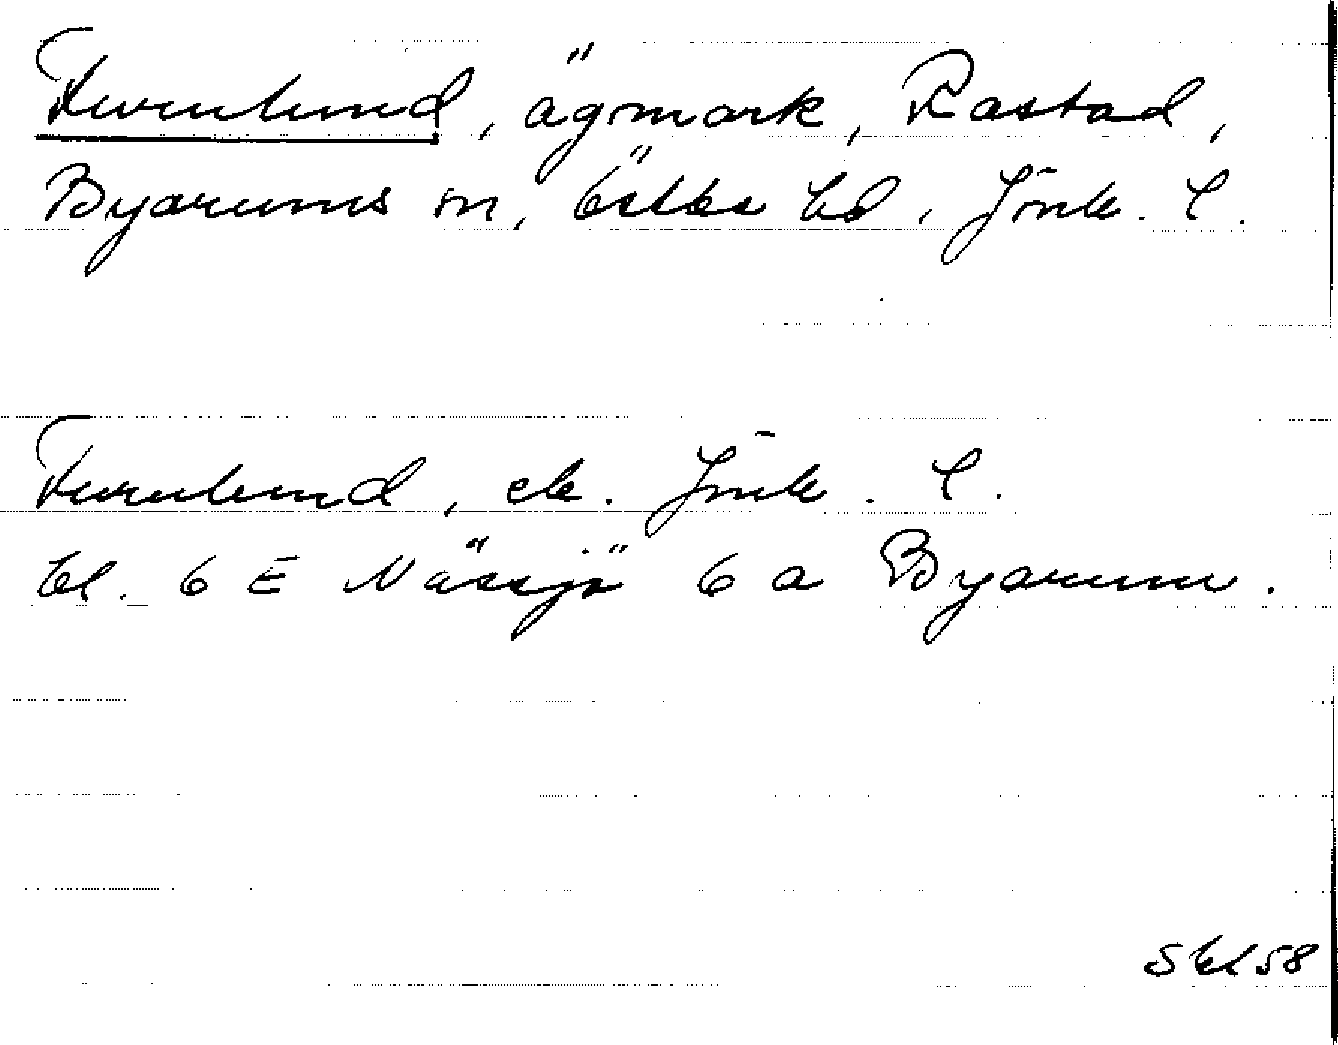 Furulund, ägmark, Rastad,
Byarums sn, Östbo hd, Jönk. l.
Furulund, ek. Jönk. l.
bl. 6 E Nässjö 6 a Byarum.
Skl 58